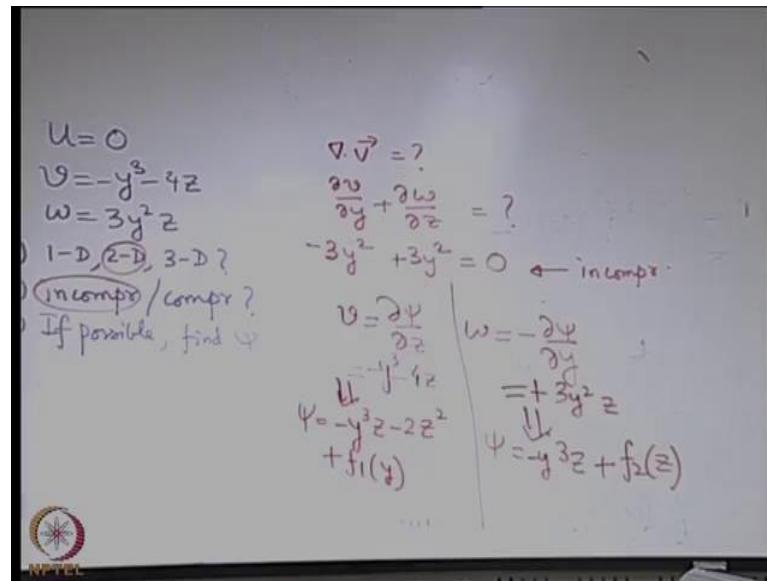 u = 0
v = -y³ - 4z
w = 3y² z
) 1-D, 2-D, 3-D ?
) incompr / compr ?
) If possible, find ψ
∇. V⃗ = ?
∂v/∂y + ∂w/∂z = ?
-3y² + 3y² = 0 ← incompr.
v = ∂ψ/∂z
= -y³ - 4z
⇓
ψ = -y³z - 2z²
+ f₁(y)
w = - ∂ψ/∂y
= + 3y² z
⇓
ψ = -y³z + f₂(z)
NPTEL